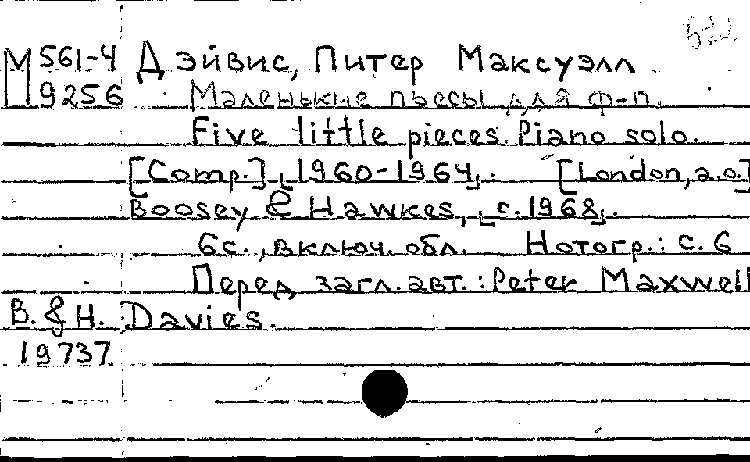 М 561-4 Дэйвис, Питер Максуэлл
9256 Маленькие пьесы для ф-п.
Five little pieces. Piano solo.
[Comp.] 1960-1964. [London, a.o.]
Boosey & Hawkes, с. 1968.
6с., включ. обл. Нотогр.: с. 6
Перед загл. авт.: Peter Maxwell
B. & H. Davies.
19737